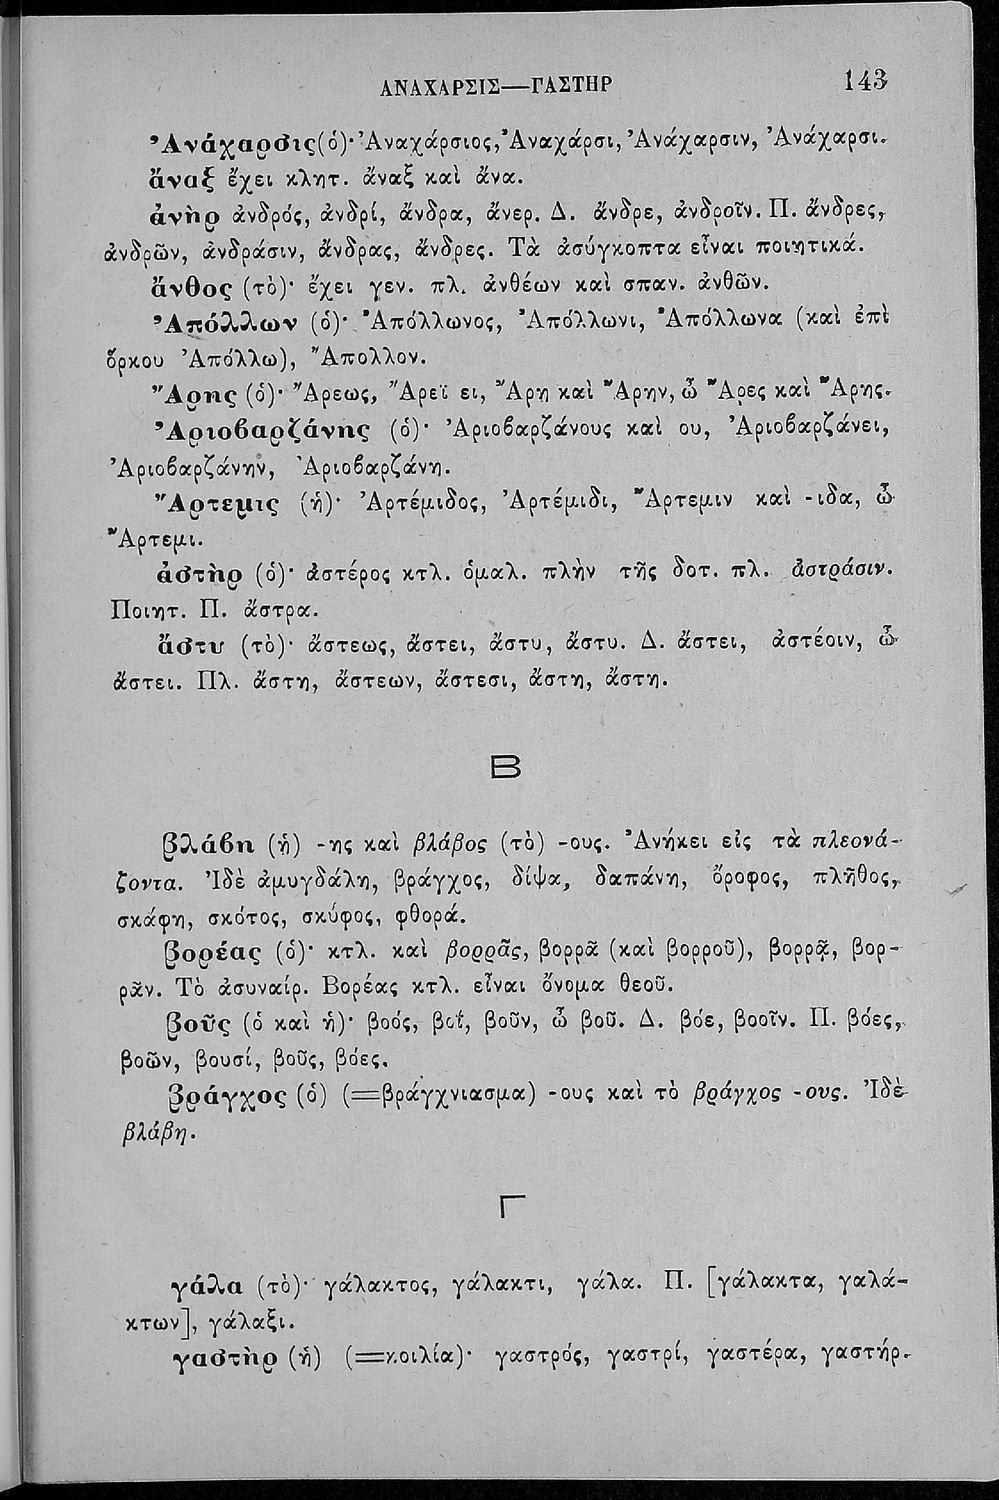 ΑΝΑΧΑΡΣΙΣ—ΓΑΣΤΗΡ 143
Ἀνάχαρσις (ὁ)· Ἀναχάρσιος, Ἀναχάρσι, Ἀνάχαρσιν, Ἀνάχαρσι.
ἄναξ ἔχει κλητ. ἄναξ καὶ ἄνα.
ἀνὴρ ἀνδρός, ἀνδρί, ἄνδρα, ἄνερ. Δ. ἄνδρε, ἀνδροῖν. Π. ἄνδρες,
ἀνδρῶν, ἀνδράσιν, ἄνδρας, ἄνδρες. Τὰ ἀσύγκοπτα εἶναι ποιητικά.
ἄνθος (τὸ)· ἔχει γεν. πλ. ἀνθέων καὶ σπαν. ἀνθῶν.
Ἀπόλλων (ὁ)· Ἀπόλλωνος, Ἀπόλλωνι, Ἀπόλλωνα (καὶ ἐπὶ
ὅρκου Ἀπόλλω), Ἄπολλον.
Ἄρης (ὁ)· Ἄρεως, Ἄρεϊ ει, Ἄρη καὶ Ἄρην, ὦ Ἄρες καὶ Ἄρης.
Ἀριοβαρζάνης (ὁ)· Ἀριοβαρζάνους καὶ ου, Ἀριοβαρζάνει,
Ἀριοβαρζάνην, Ἀριοβαρζάνη.
Ἄρτεμις (ἡ)· Ἀρτέμιδος, Ἀρτέμιδι, Ἄρτεμιν καὶ -ιδα, ὦ
Ἄρτεμι.
ἀστὴρ (ὁ)· ἀστέρος κτλ. ὁμαλ. πλὴν τῆς δοτ. πλ. ἀστράσιν.
Ποιητ. Π. ἄστρα.
ἄστυ (τὸ)· ἄστεως, ἄστει, ἄστυ, ἄστυ. Δ. ἄστει, ἀστέοιν, ὦ
ἄστει. Πλ. ἄστη, ἄστεων, ἄστεσι, ἄστη, ἄστη.
Β
βλάβη (ἡ) -ης καὶ βλάβος (τὸ) -ους. Ἀνήκει εἰς τὰ πλεονά-
ζοντα. Ἰδὲ ἀμυγδάλη, βράγχος, δίψα, δαπάνη, ὄροφος, πλῆθος,
σκάφη, σκότος, σκύφος, φθορά.
βορέας (ὁ)· κτλ. καὶ βορρᾶς, βορρᾶ (καὶ βορροῦ), βορρᾷ, βορ-
ρᾶν. Τὸ ἀσυναίρ. Βορέας κτλ. εἶναι ὄνομα θεοῦ.
βοῦς (ὁ καὶ ἡ)· βοός, βοΐ, βοῦν, ὦ βοῦ. Δ. βόε, βοοῖν. Π. βόες,
βοῶν, βουσί, βοῦς, βόες.
βράγχος (ὁ) (=βράγχνιασμα) -ους καὶ τὸ βράγχος -ους. Ἰδὲ
βλάβη.
Γ
γάλα (τὸ)· γάλακτος, γάλακτι, γάλα. Π. [γάλακτα, γαλά-
κτων], γάλαξι.
γαστὴρ (ἡ) (=κοιλία)· γαστρός, γαστρί, γαστέρα, γαστήρ.